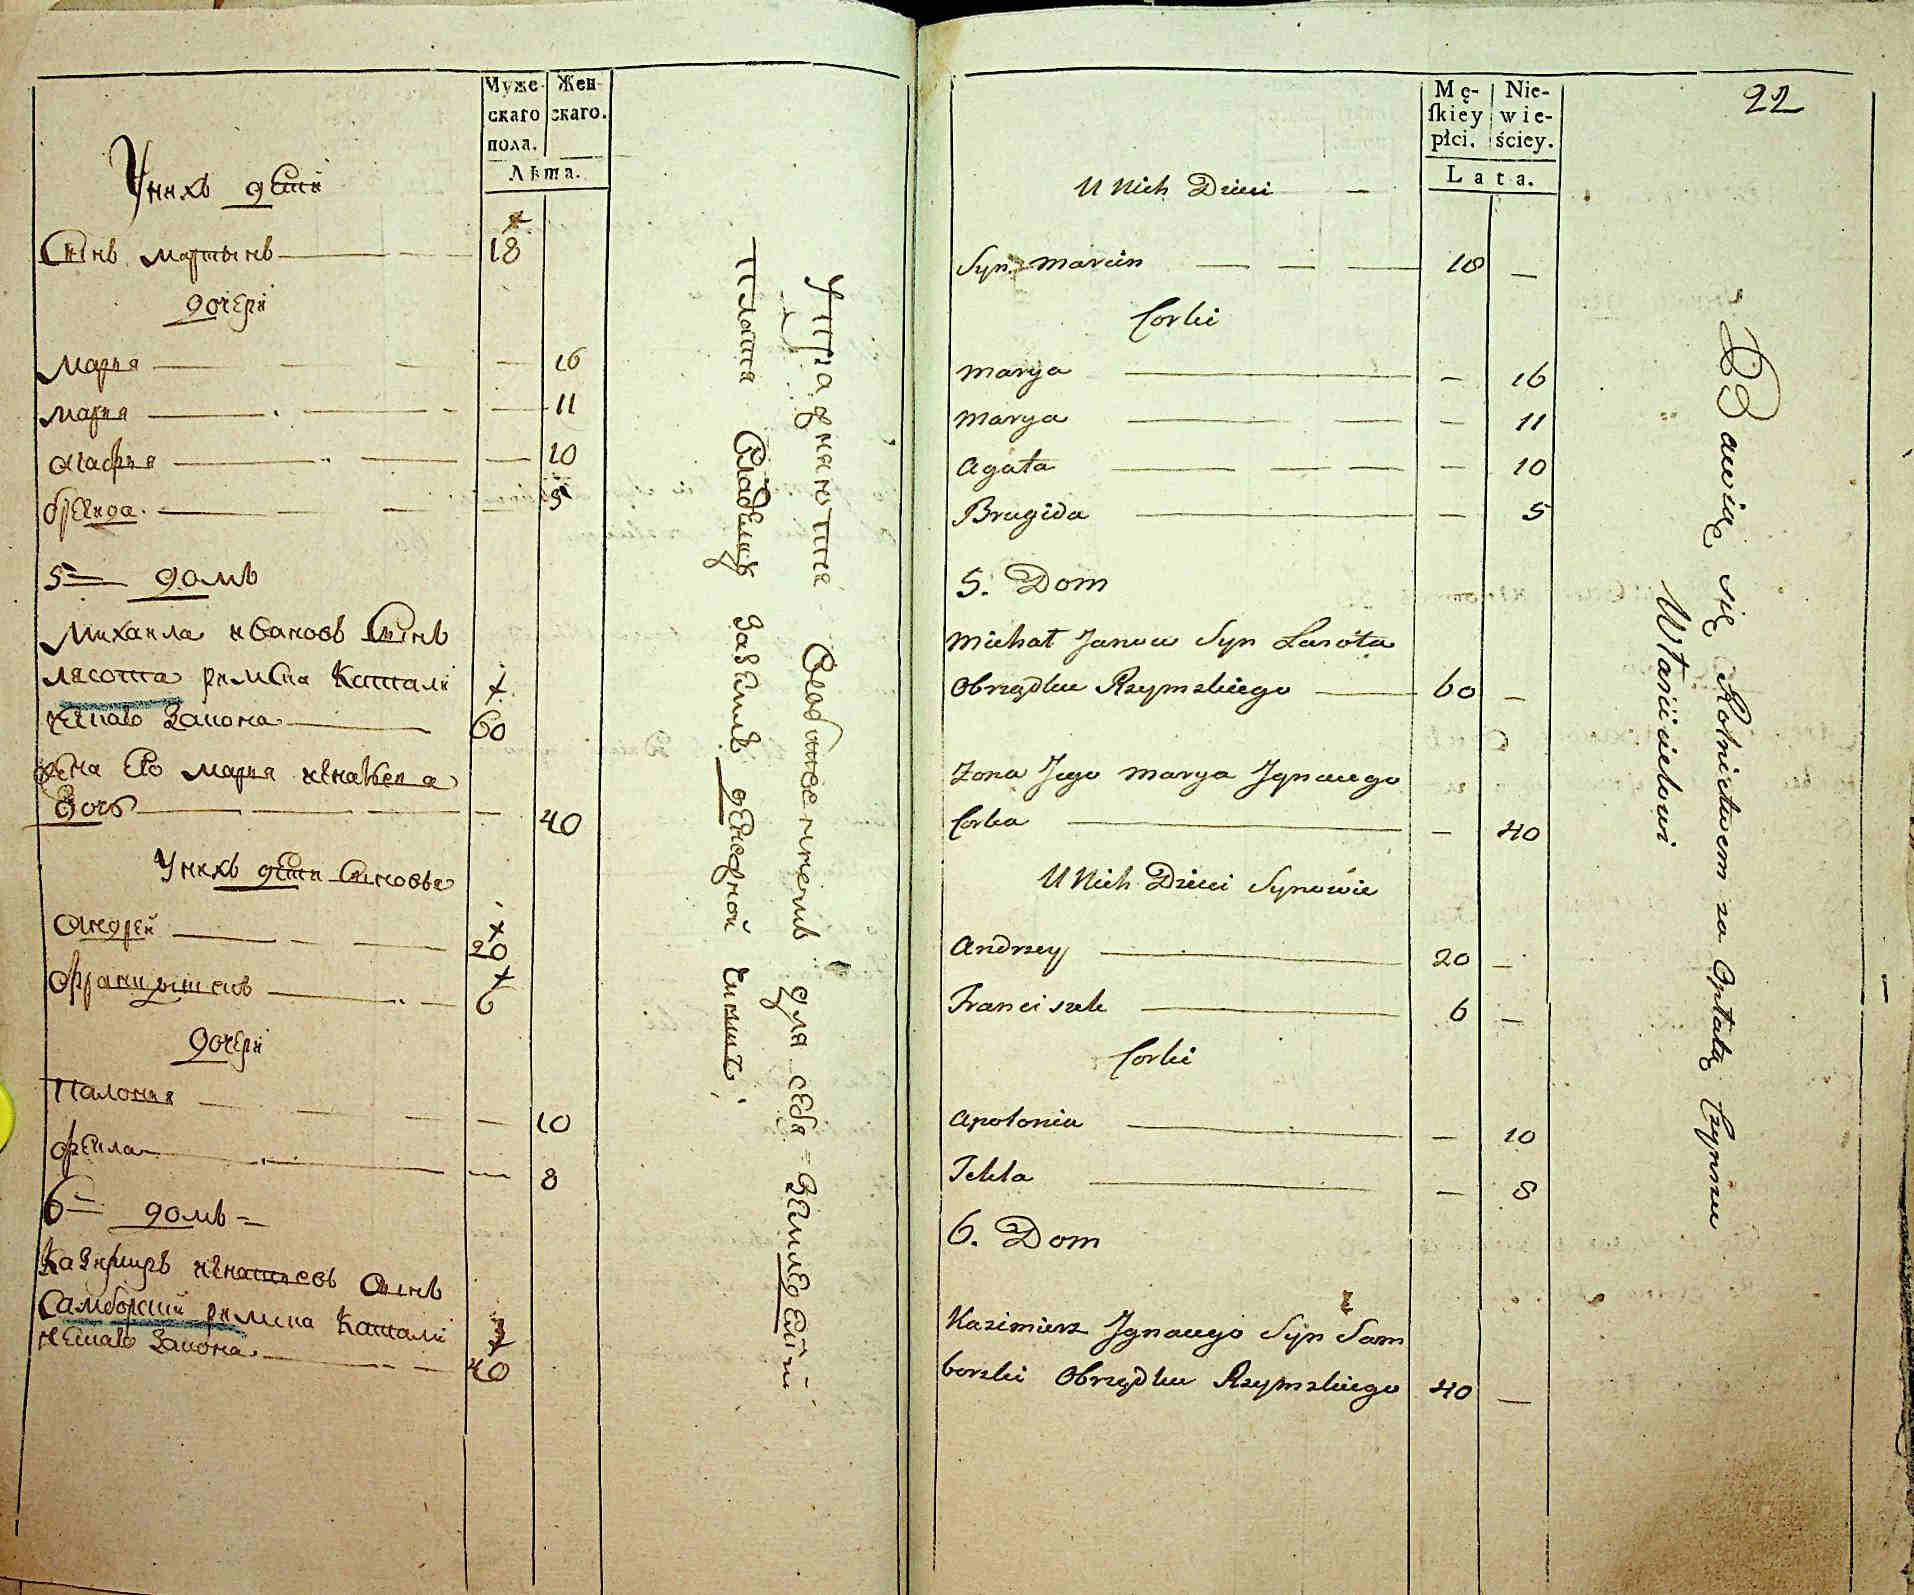 Муже-
скаго
пола.
Жен-
скаго.
Лѣта.
У нихъ дети
Сынъ мартынъ 18
дочери
Марья 16
Марья 11
Агафья 10
бреида 5
5 домъ
Михаила ивановъ Сынъ
ласота римска Катали
ческаго Закона 60
жена Его марья игнатьева
дочь 40
У нихъ дети Сыновья
Андрей 20
Францышекъ 6
дочери
Палония 10
фекла 8
6 домъ
Казимиръ игнатьевъ Сынъ
Самборский римска Катали
ческаго Закона 40
Упражняютца Собственнымъ для себя земледелием
платя владельцу за землю денежной чиншъ
22
Mę-
ſkiey
płci.
Nie-
wie-
ściey.
Lata.
U Nich Dzieci
Syn Marcin 18
Corki
Marya 16
Marya 11
Agata 10
Brugida 5
5. Dom
Michał Janow Syn Lasota
Obrządku Rzymskiego 60
Zona Jego Marya Jgnacego
Corka 40
U Nich Dzieci Synowie
Andrzey 20
Franciszek 6
Corki
Apolonia 10
Tekla 8
6. Dom
Kazimierz Jgnacego Syn Sam
borski Obrządku Rzymskiego 40
Bawią się Rolnictwem za Opłatą Czynszu
Włascicielowi